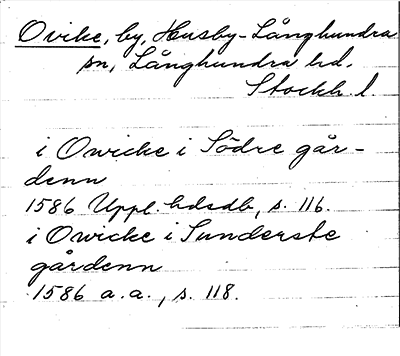 Ovike, by, Husby-Långhundra
sn, Långhundra hd.
Stockh. l.
i Owicke i Södre går-
denn
1586 Uppl. hdsdb, s. 116.
i Owicke i Sunderste
gårdenn
1586 a.a., s. 118.